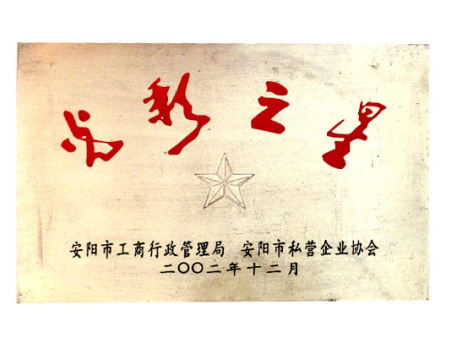 光彩之星
安阳市工商行政管理局 安阳市私营企业协会
二〇〇二年十二月